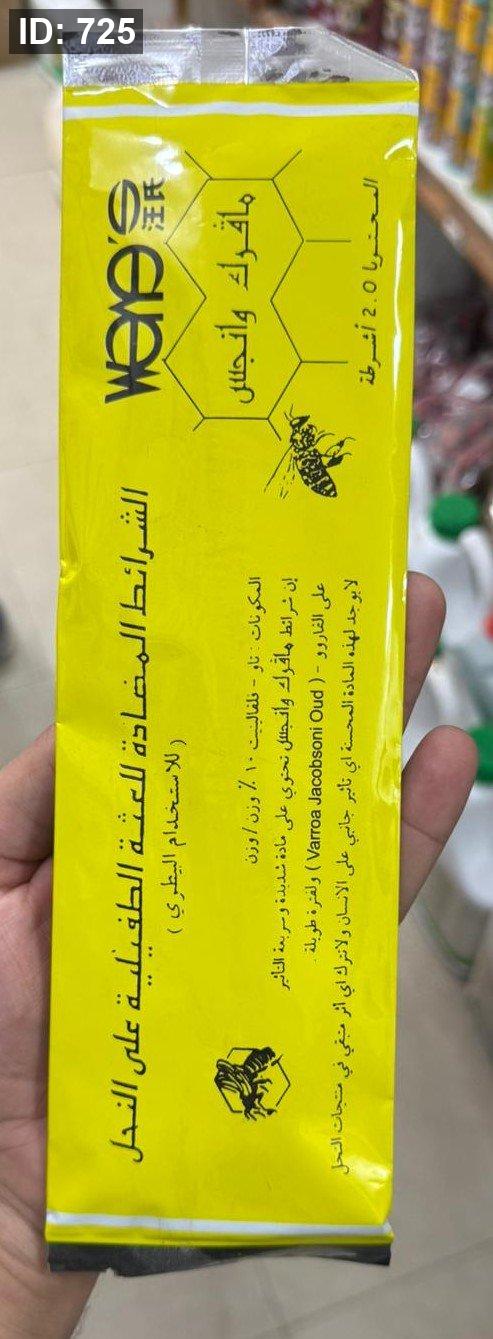 ID: 725
WANG'S
汪氏
مافرك وانجللل
المحتويا 2.0 أشرطة
الشرائط المضادة للعثة الطفيلية على النحل
( للاستخدام البيطري )
المكونات : تاو - فلفالينيت ١٠ ٪ وزن / وزن
إن شرائط مافرك وانجللل تحتوي على مادة شديدة وسريعة التاثير
على الفاروو - ( Varroa Jacobsoni Oud ) ولفترة طويلة .
لا يوجد لهذه المادة المحسنة اي تاثير جانبي على الانسان ولاتترك اي اثر متبقي في منتجات النحل